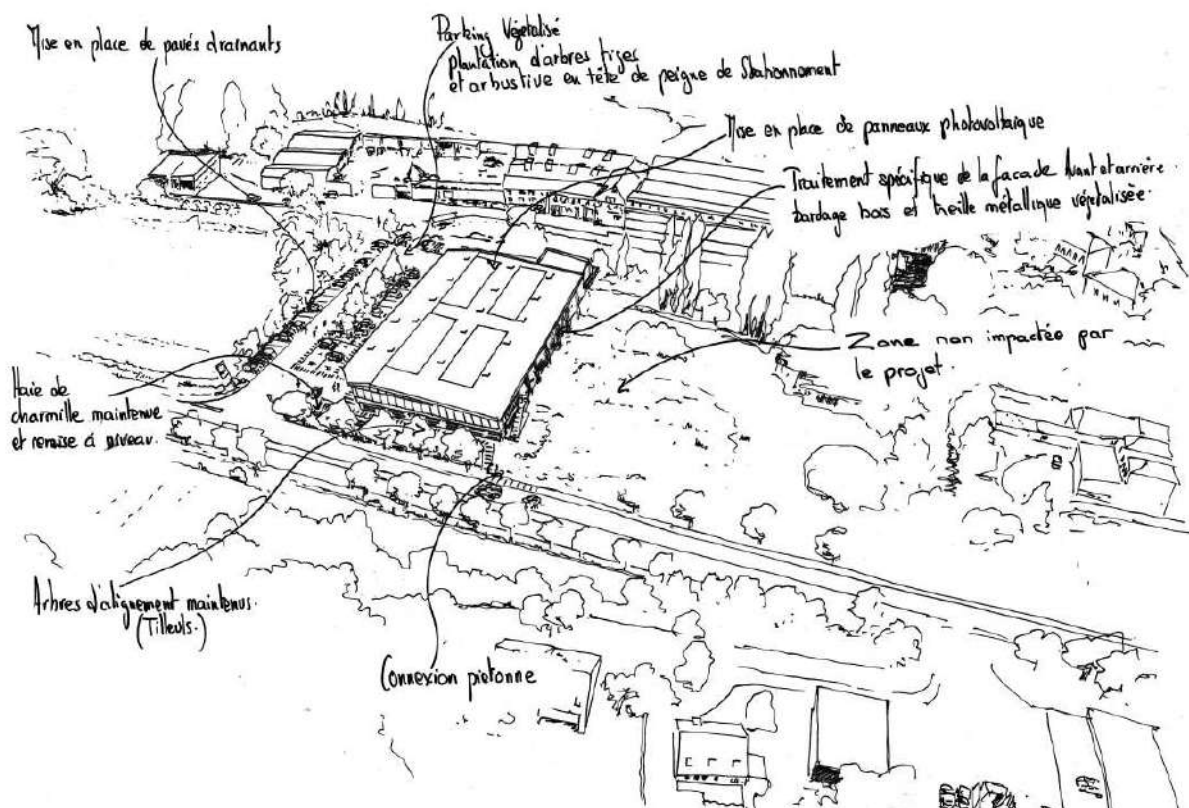 Mise en place de pavés drainants
Parking Végétalisé
plantation d'arbres tiges
et arbustive en tête de peigne de Stationnement
Mise en place de panneaux photovoltaïque
Traitement spécifique de la façade Avant et arrière
bardage bois et treille métallique végétalisée.
Zone non impactée par
le projet.
Haie de
charmille maintenue
et remise à niveau.
Arbres d'alignement maintenus.
(Tilleuls.)
Connexion pietonne